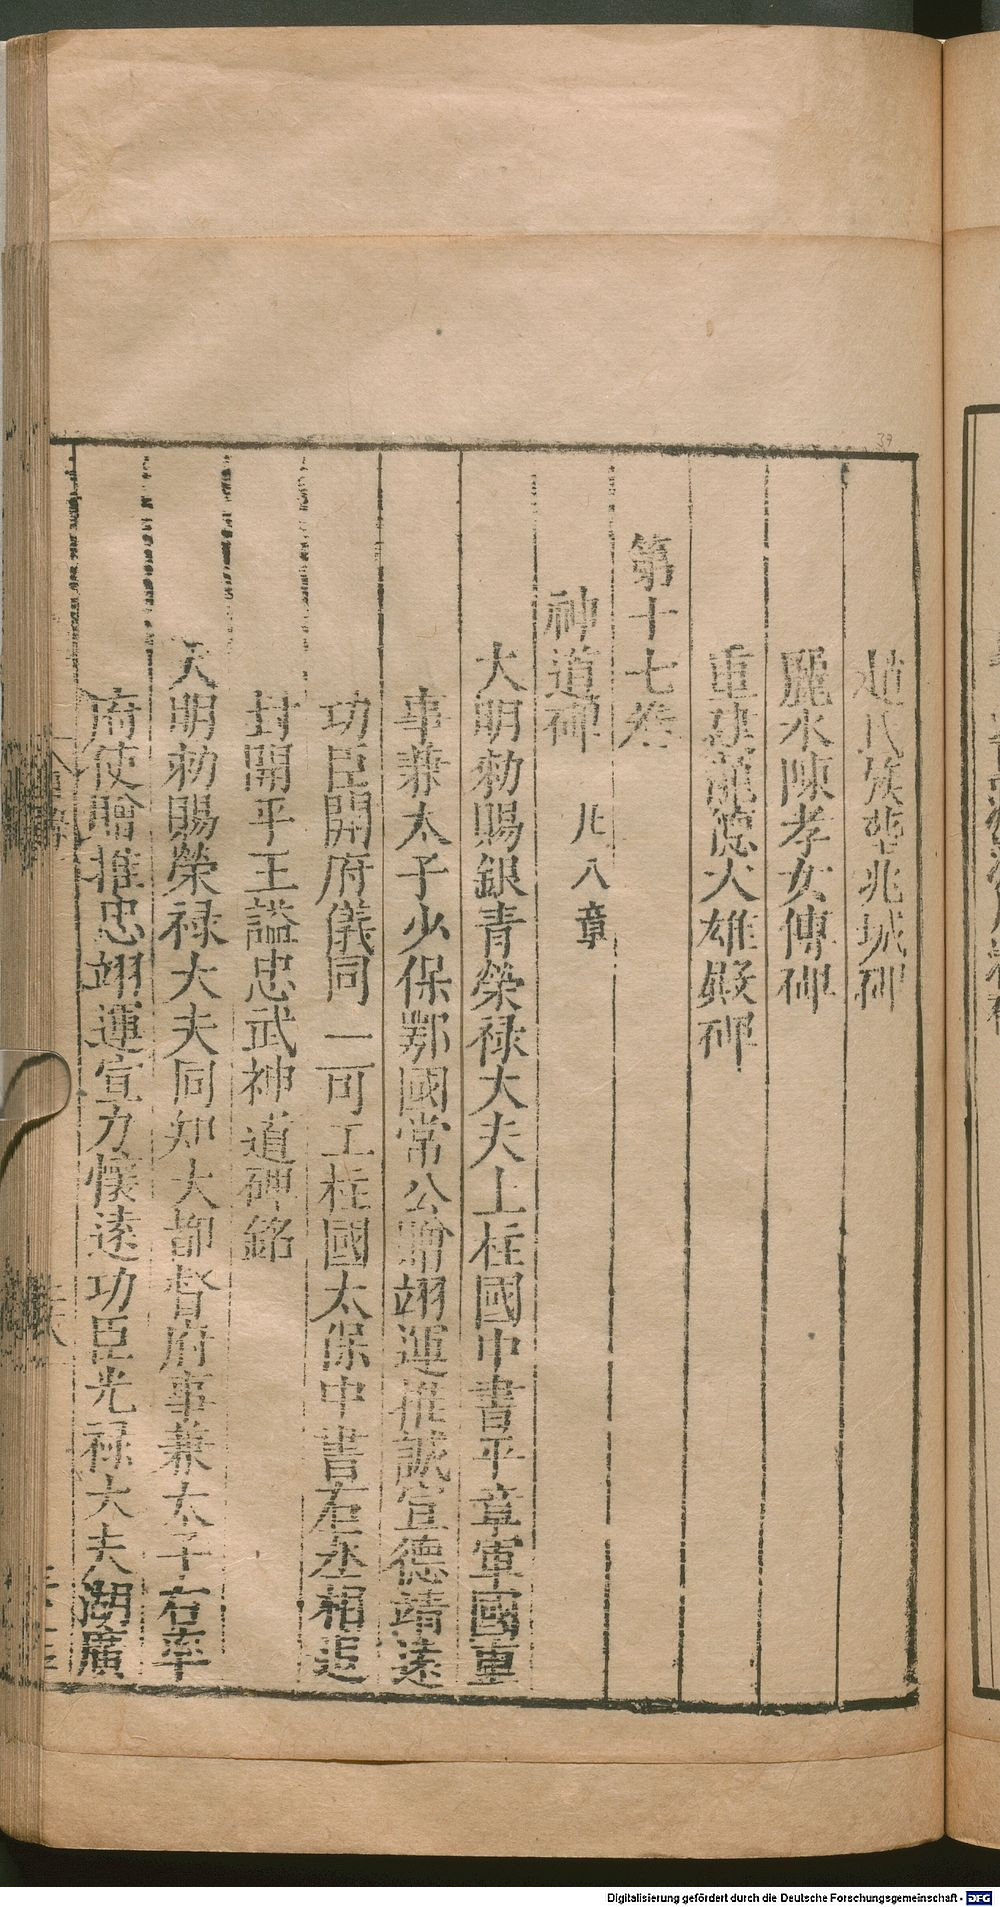 趙氏族塋兆域碑
麗水陳孝女傳碑
重建龍德大雄殿碑
第十七卷
神道碑 凡八章
大明勅賜銀青榮禄大夫上柱國中書平章軍國重
事兼太子少保鄂國常公贈翊運推誠宣德靖遠
功臣開府儀同三司上柱國太保中書右丞相追
封開平王謚忠武神道碑銘
大明勅賜榮禄大夫同知大都督府事兼太子右率
府使贈推忠翊運宣力懷遠功臣光禄大夫湖廣
39
Digitalisierung gefördert durch die Deutsche Forschungsgemeinschaft - DFG